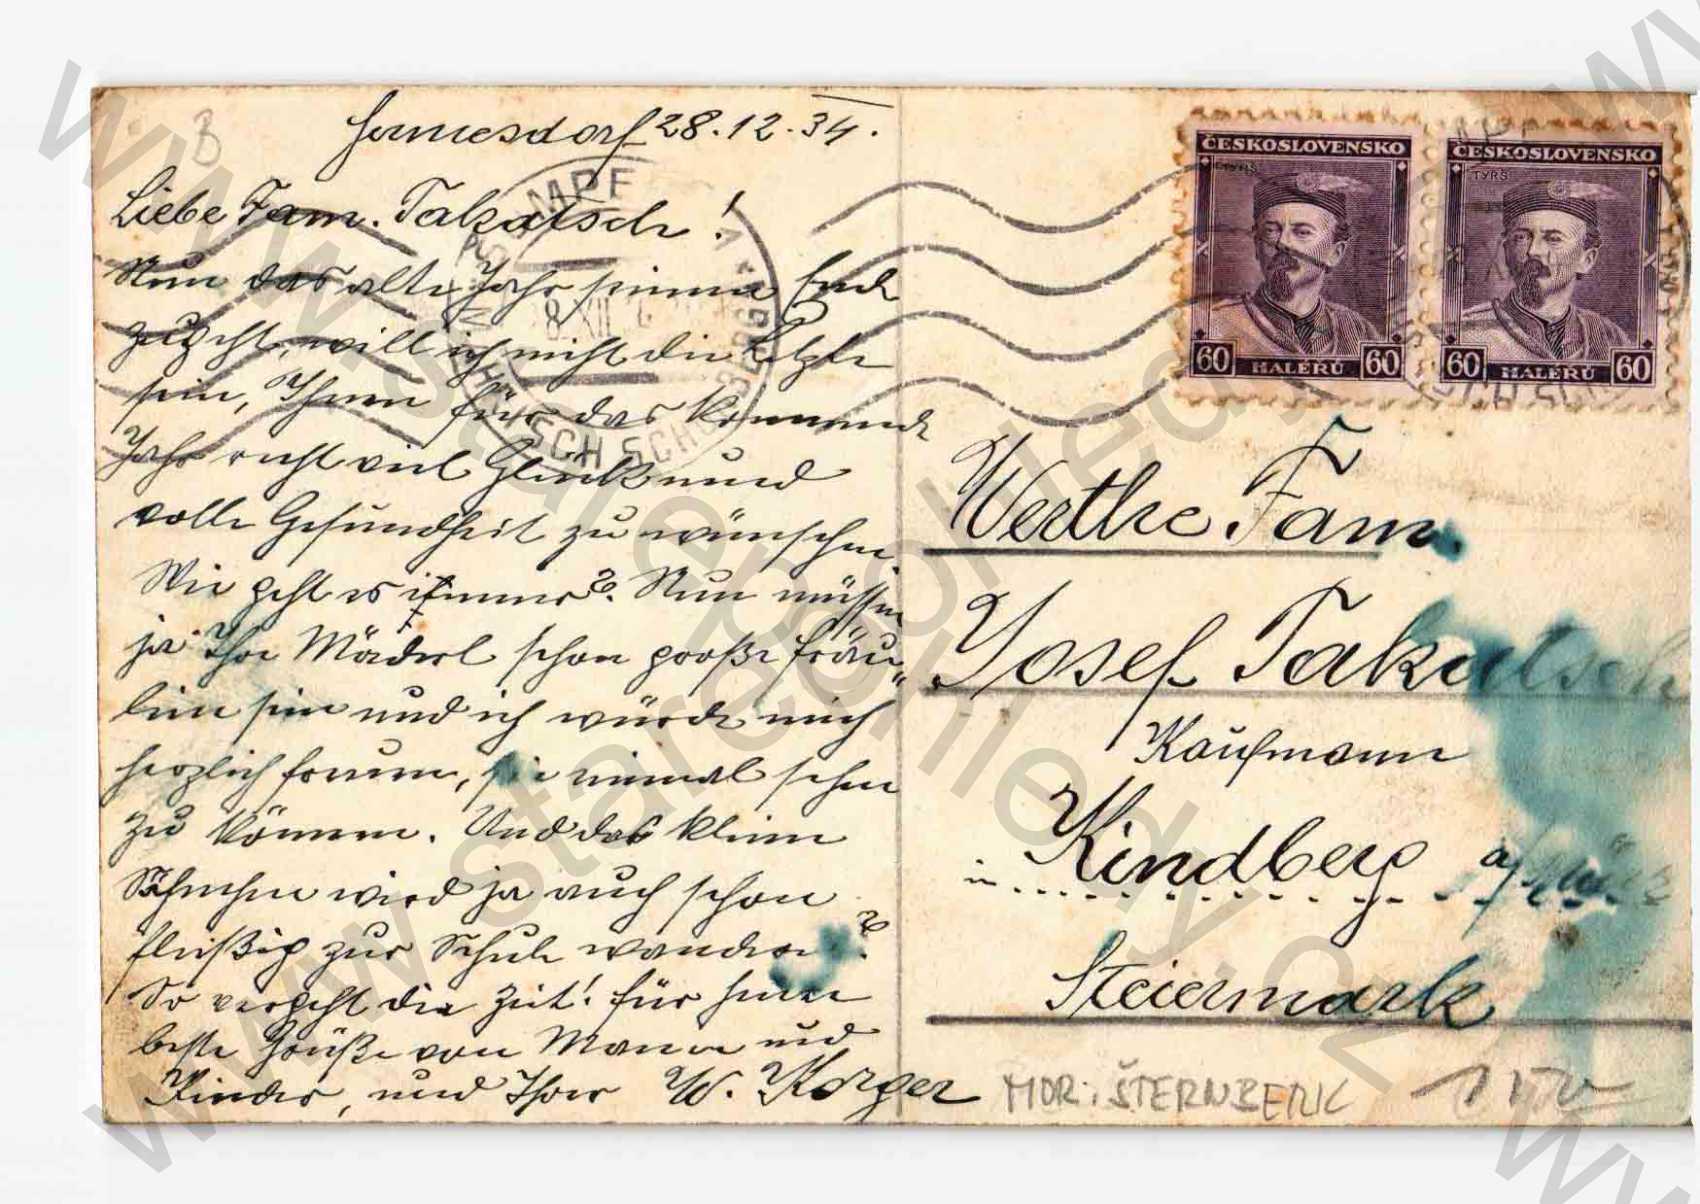 28.12.34.
Liebe Fam. Takatsch!
Nun das alte Jahr seinem Ende
zugeht, will ich nicht die Letzte
sein, Ihnen für das kommende
Jahr recht viel Glück und
volle Gesundheit zu wünschen.
Wie geht es immer? Nun müssen
ja Ihre Mäderl schon große Fräu-
lein sein und ich würde mich
herzlich freuen, sie einmal sehen
zu können. Und das kleine
Söhnchen wird ja auch schon
fleißig zur Schule wandern?
So vergeht die Zeit! Für heute
beste Grüße von Mann und
Kinder, und Ihrer W. Korger
ČESKOSLOVENSKO
TYRŠ
60 HALÉŘŮ 60
ČESKOSLOVENSKO
TYRŠ
60 HALÉŘŮ 60
Werthe Fam.
Josef Takatsch
Kaufmann
in Kindberg a/Mürz
Steiermark
MOR. ŠTERNBERK
B
www.stareopohledy.cz